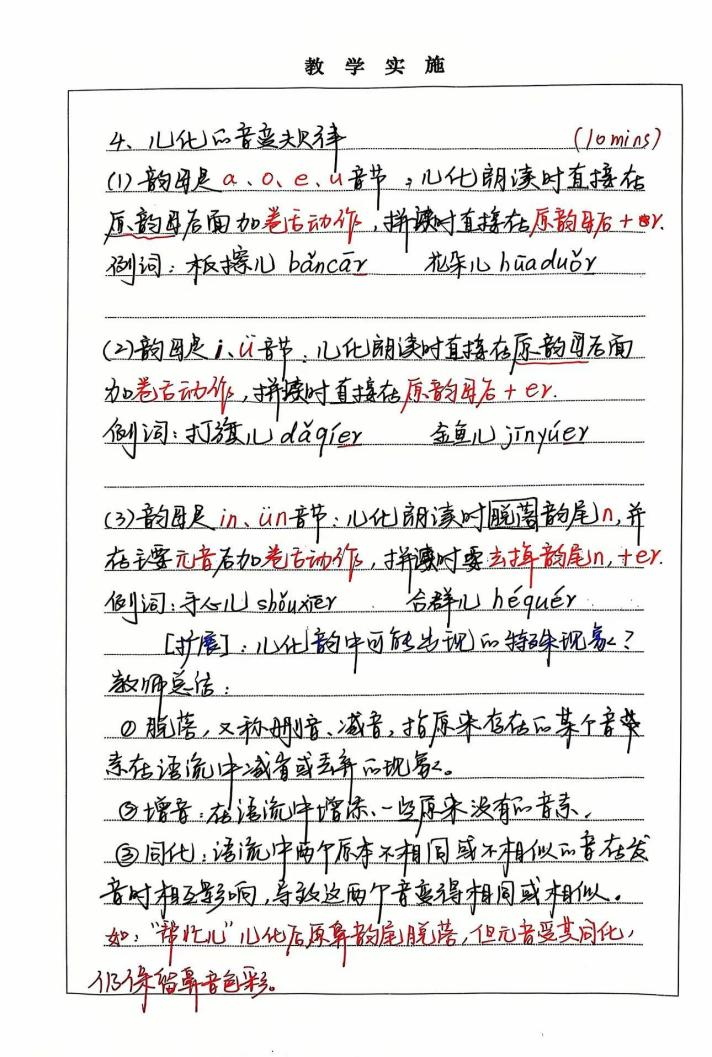 教 学 实 施
4、儿化的音变规律 (10mins)
(1)韵母是 a、o、e、u音节；儿化朗读时直接在
原韵母后面加卷舌动作，拼读时直接在原韵母后+er.
例词：板擦儿 bǎncār 花朵儿 hūaduǒr
(2)韵母是 i、ü音节：儿化朗读时直接在原韵母后面
加卷舌动作，拼读时直接在原韵母后+er.
例词：打旗儿 dǎqíer 金鱼儿 jīnyúer
(3)韵母是 in、ün音节：儿化朗读时脱落韵尾n，并
在主要元音后加卷舌动作，拼读时要去掉韵尾n，+er.
例词：手心儿 shǒuxīer 合群儿 héquér
[扩展]：儿化韵中可能出现的特殊现象？
教师总结：
①脱落，又称删音、减音，指原来存在的某个音
素在语流中减省或丢弃的现象。
②增音：在语流中增添一些原来没有的音素.
③同化：语流中两个原本不相同或不相似的音在发
音时相互影响，导致这两个音变得相同或相似。
如："帮忙儿"儿化后原鼻韵尾脱落，但元音受其同化，
仍保留鼻音色彩。